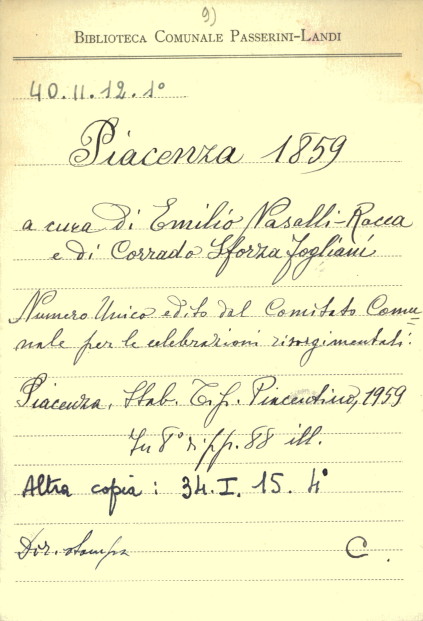 9)
BIBLIOTECA COMUNALE PASSERINI-LANDI
40.II.12.1°
Piacenza 1859
a cura di Emilio Nasalli-Rocca
e di Corrado Sforza Fogliani
Numero Unico edito dal Comitato Comu=
nale per le celebrazioni risorgimentali.
Piacenza, Stab. Tip. Piacentino, 1959
In 8° di pp. 88 ill.
Altra copia: 34.I.15.4°
Dir. stampa
C.